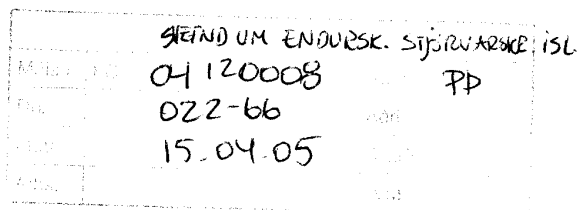 NEFND UM ENDURSK. STJÓRNARSKR. ÍSL
04120008 PD
022-66
15.04.05